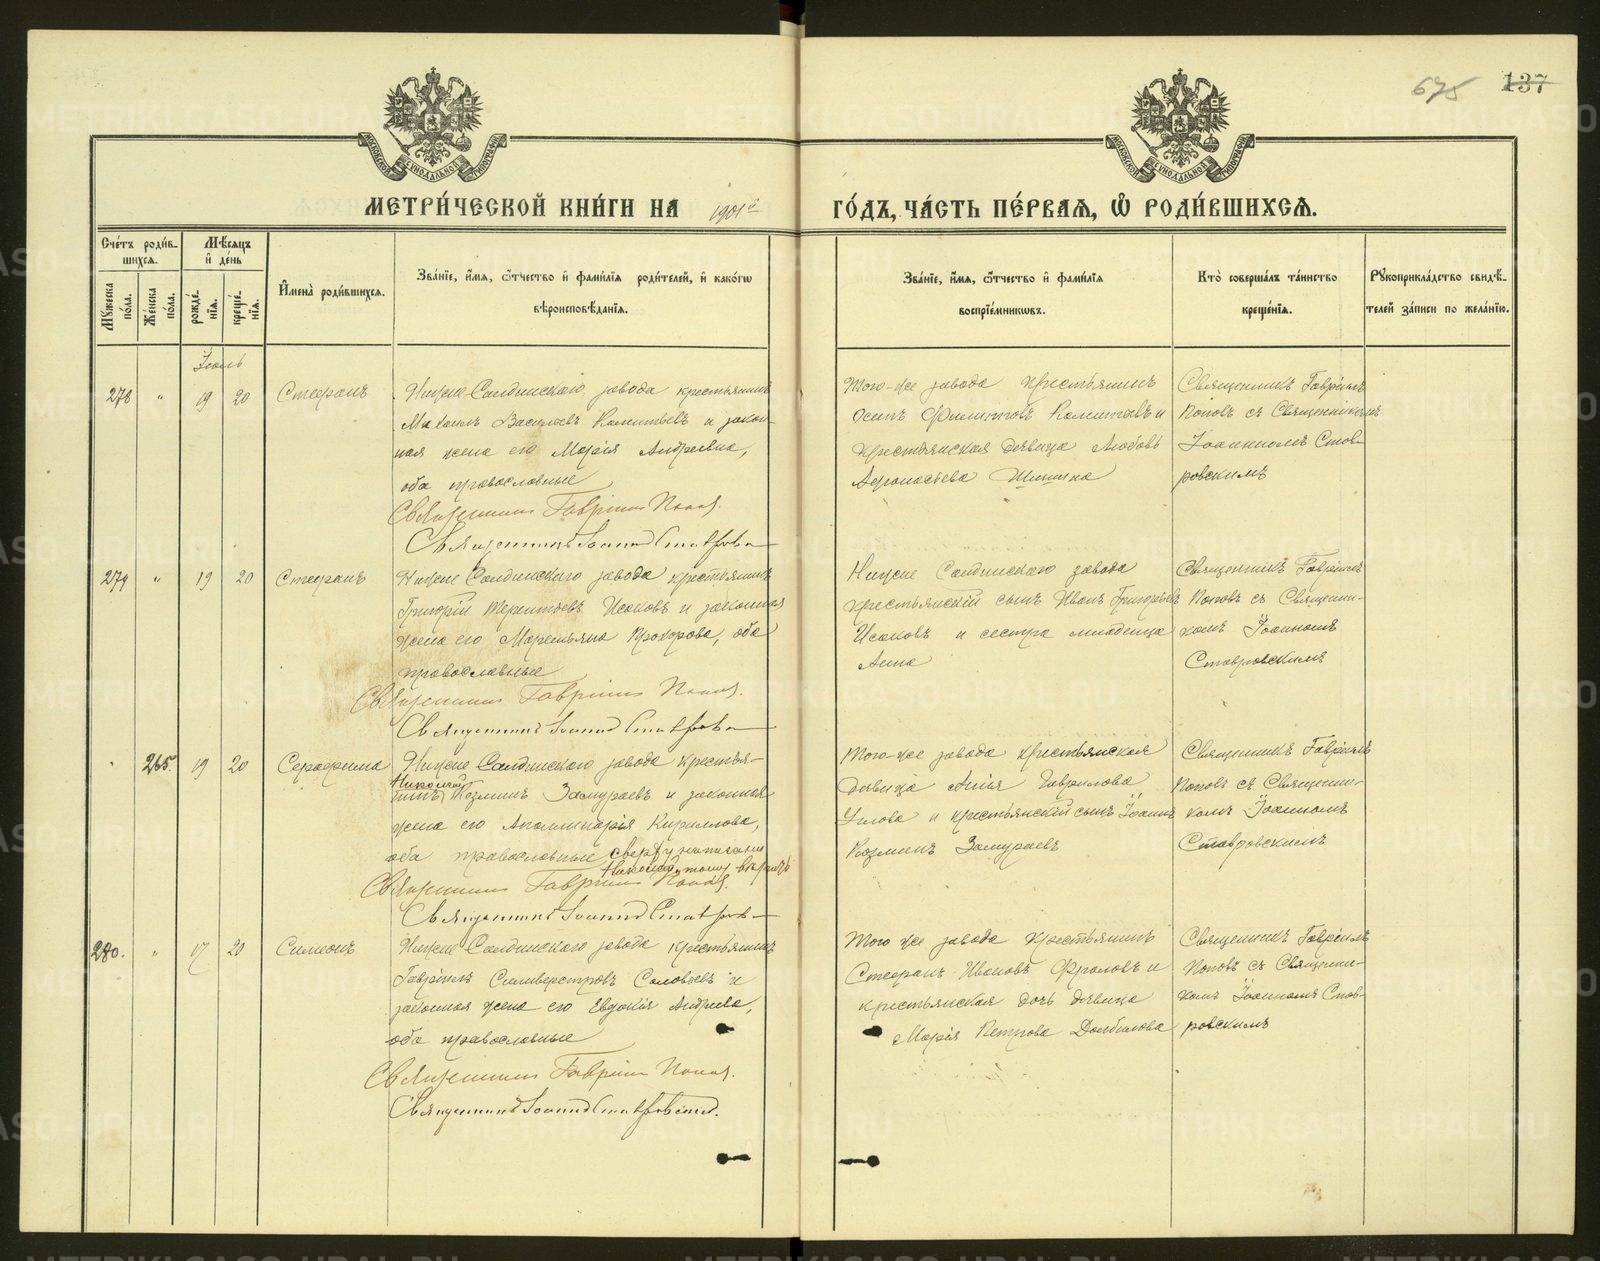 675 137
МЕТРИ́ЧЕСКОЙ КНИ́ГИ НА 1901й ГО́ДЪ, ЧА́СТЬ ПЕ́РВАЯ, Ѽ РОДИ́ВШИХСЯ.
Сче́тъ роди́вшихся.
Мꙋ́жеска по́ла.
Же́нска по́ла.
Мѣ́сяцъ и҆ де́нь
рожде́нїя.
креще́нїя.
И҆мена̀ роди́вшихся.
Зва́нїе, и҆́мя, ѻ҆́тчество и҆ фами́лїя роди́телей, и҆ како́гѡ
вѣроисповѣ́данїя.
Зва́нїе, и҆́мя, ѻ҆́тчество и҆ фами́лїя
воспрїе́мникѡвъ.
Кто̀ соверша́лъ та́инство
креще́нїя.
Рꙋкоприкла́дство свидѣ́-
телей за́писи по жела́нїю.
Іюль
278 " 19 20 Стефанъ
Нижне-Салдинскаго завода крестьянинъ
Михаилъ Васильевъ и закон-
ная жена его Марія Андреевна,
оба православные
Священникъ Гавріилъ Поповъ.
Священникъ Іоаннъ Ставров
Того-же завода крестьянинъ
Осипъ Филиповъ и
крестьянская дѣвица Любовь
Афонасьева Шишина
Священникъ Гавріилъ
Поповъ съ Священникомъ
Іоанномъ Став-
ровскимъ
279 " 19 20 Стефанъ
Нижне Салдинскаго завода крестьянинъ
Григорій Терентьевъ Исаковъ и законная
жена его Маремьяна Прохорова, оба
православные
Священникъ Гавріилъ Поповъ.
Священникъ Іоаннъ Ставров
Нижне Салдинскаго завода
крестьянскій сынъ Иванъ Григорьевъ
Исаковъ и сестра младенца
Анна
Священникъ Гавріилъ
Поповъ съ Священни-
комъ Іоанномъ
Ставровскимъ
265. 19 20 Серафима
Нижне Салдинскаго завода крестья-
Николай
нинъ Козминъ Замураевъ и законная
жена его Аполлинарія Кириллова,
оба православные сверху написанному
Николай тому вѣрить
Священникъ Гавріилъ Поповъ.
Священникъ Іоаннъ Ставров
Того-же завода крестьянская
дѣвица Анна Гаврилова
Углова и крестьянскій сынъ Іоаннъ
Козминъ Замураевъ
Священникъ Гавріилъ
Поповъ съ Священни-
комъ Іоанномъ
Ставровскимъ
280. " 17 20 Симеонъ
Нижне-Салдинскаго завода крестьянинъ
Гавріилъ Силиверстровъ Соловьевъ и
законная жена его Евдокія Андреева,
оба православные
Священникъ Гавріилъ Поповъ.
Священникъ Іоаннъ Ставровскій.
Того же завода крестьянинъ
Стефанъ Ивановъ Фроловъ и
крестьянская дочь дѣвица
Марія Петрова Долбилова
Священникъ Гавріилъ
Поповъ съ Священни-
комъ Іоанномъ Став-
ровскимъ
METRIKI.GASO-URAL.RU